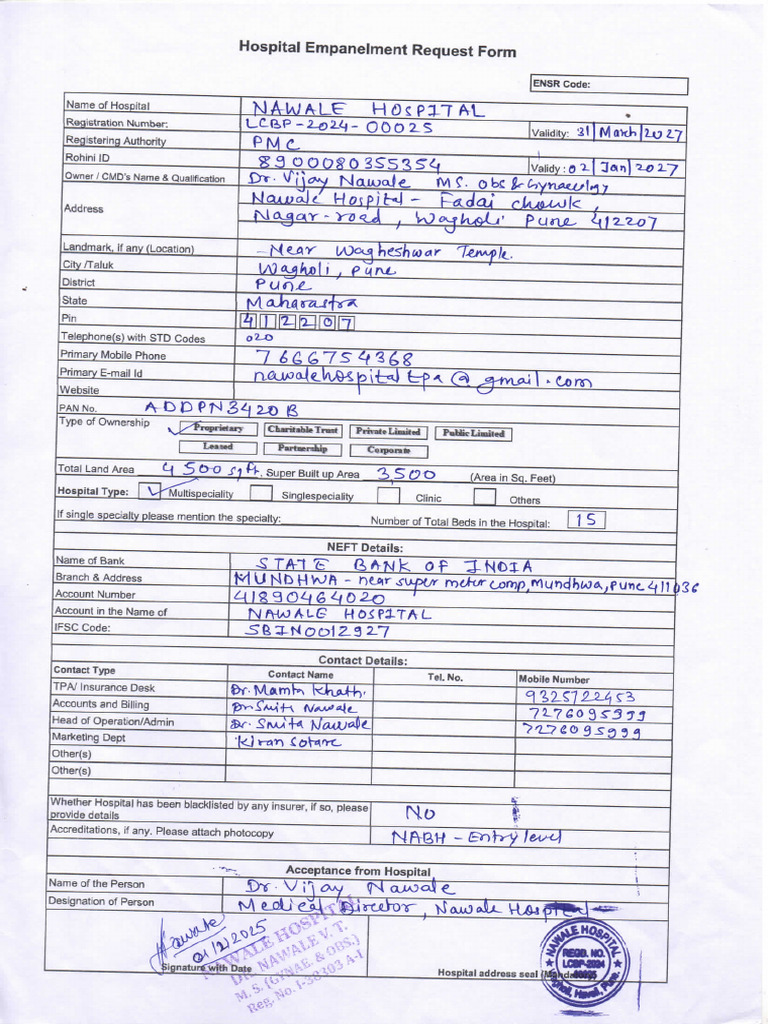 Hospital Empanelment Request Form
ENSR Code:
Name of Hospital NAWALE HOSPITAL
Registration Number: LCBP-2024-00025 Validity: 31 March 2027
Registering Authority PMC
Rohini ID 8900080355354 Validy : 02 Jan 2027
Owner / CMD's Name & Qualification Dr. Vijay Nawale MS. Obs & Gynaecology
Address Nawale Hospital - Fadai chowk,
Nagar-road, Wagholi Pune 412207
Landmark, if any (Location) - Near Wagheshwar Temple.
City /Taluk Wagholi, Pune
District Pune
State Maharastra
Pin 412207
Telephone(s) with STD Codes 020
Primary Mobile Phone 7666754368
Primary E-mail Id nawalehospitaltpa@gmail.com
Website
PAN No. ADDPN3420B
Type of Ownership Proprietary Charitable Trust Private Limited Public Limited
Leased Partnership Corporate
Total Land Area 4500 sqft, Super Built up Area 3,500 (Area in Sq. Feet)
Hospital Type: Multispeciality Singlespeciality Clinic Others
If single specialty please mention the specialty: Number of Total Beds in the Hospital: 15
NEFT Details:
Name of Bank STATE BANK OF INDIA
Branch & Address MUNDHWA - near super meter comp, Mundhwa, Pune 411036
Account Number 41890464020
Account in the Name of NAWALE HOSPITAL
IFSC Code: SBIN0012927
Contact Details:
Contact Type Contact Name Tel. No. Mobile Number
TPA/ Insurance Desk Dr. Mamta Khathi 9325722453
Accounts and Billing Dr Smita Nawale 7276095999
Head of Operation/Admin Dr. Smita Nawale 7276095999
Marketing Dept Kiran Sotare
Other(s)
Other(s)
Whether Hospital has been blacklisted by any insurer, if so, please
provide details No
Accreditations, if any. Please attach photocopy NABH - Entry level
Acceptance from Hospital
Name of the Person Dr. Vijay Nawale
Designation of Person Medical Director, Nawale Hospital
Nawale
01/2/2025
Signature with Date
NAWALE HOSPITAL
DR. NAWALE V. T.
M. S. (GYNAE. & OBS.)
Reg. No. I-58403 A-1
NAWALE HOSPITAL
REGD. NO.
LCBP-2024
00025
Wagholi, Haveli, Pune.
Hospital address seal